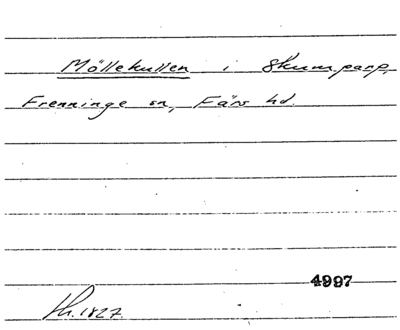 Möllekullen i Skumparp,
Frenninge sn, Färs hd.
4997
1827.